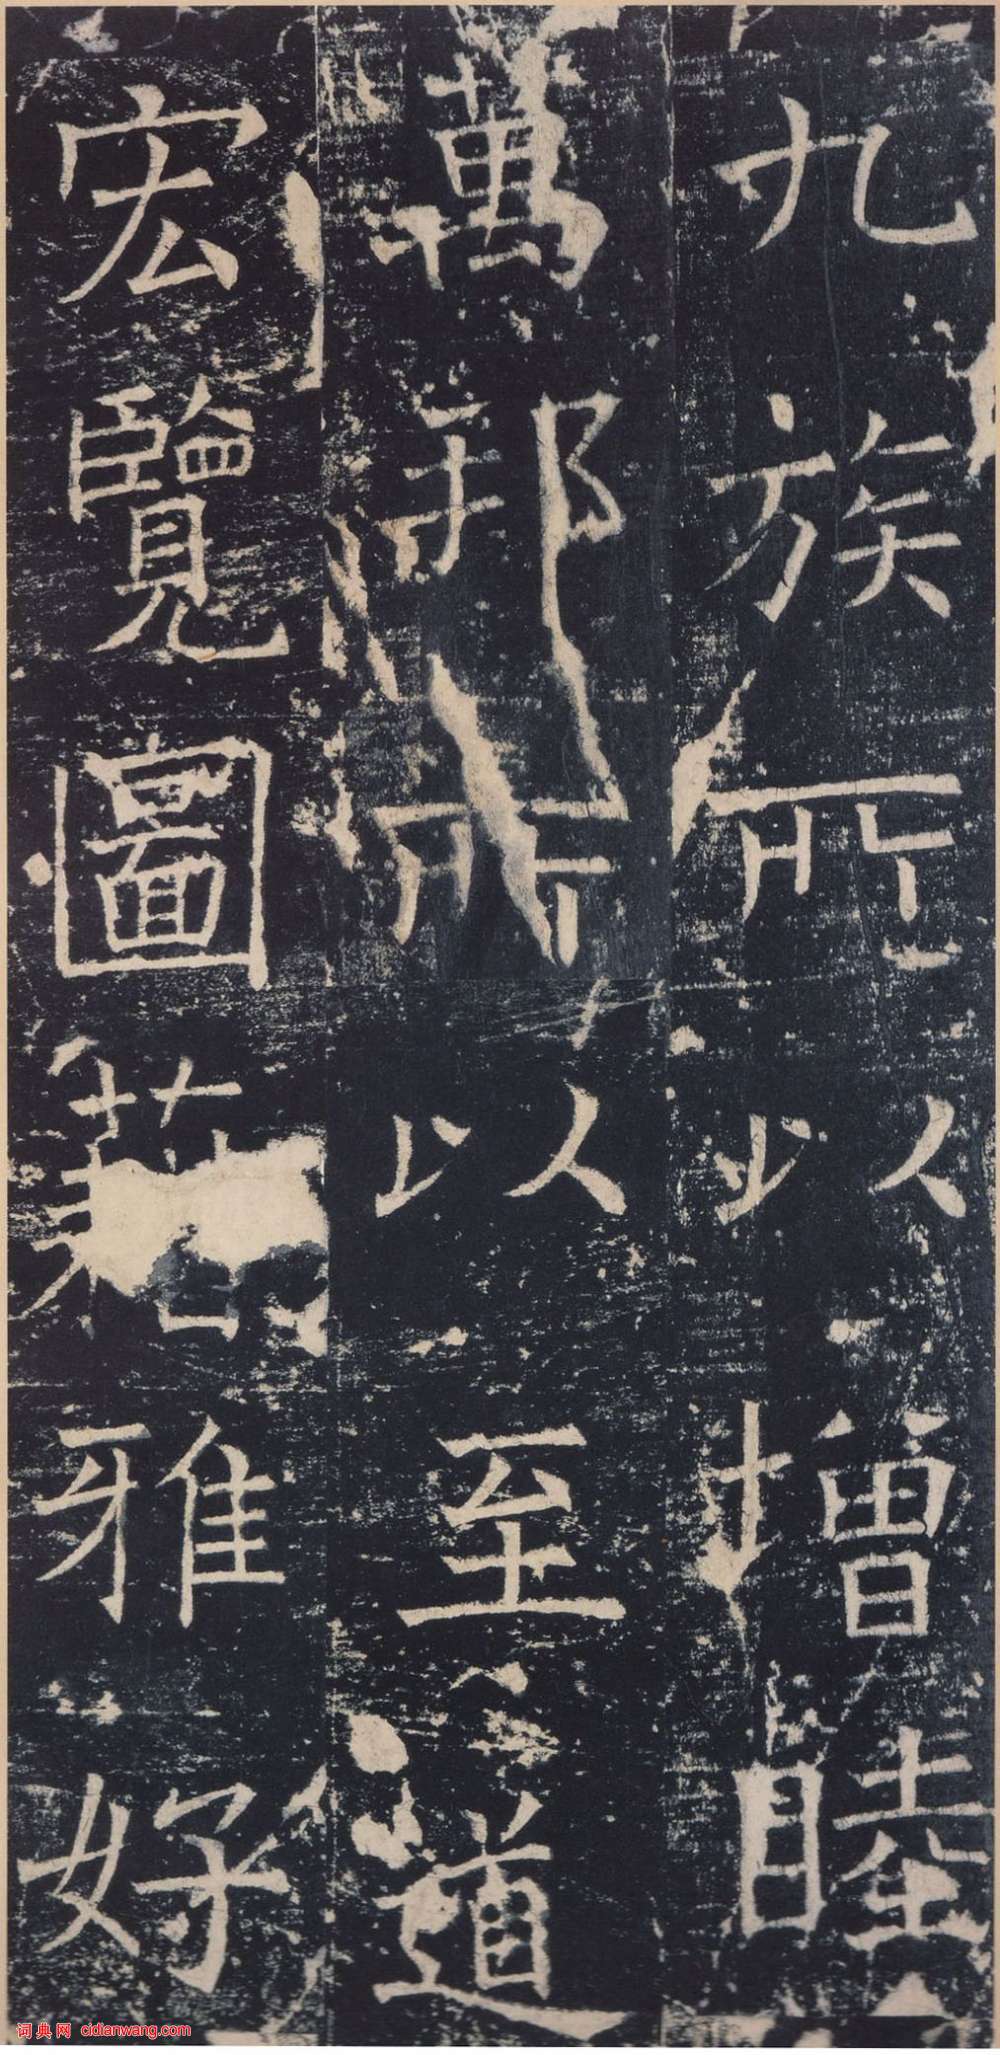 九族所以增睦
萬邦所以至道
宏覽圖籍雅好
词典网 cidianwang.com